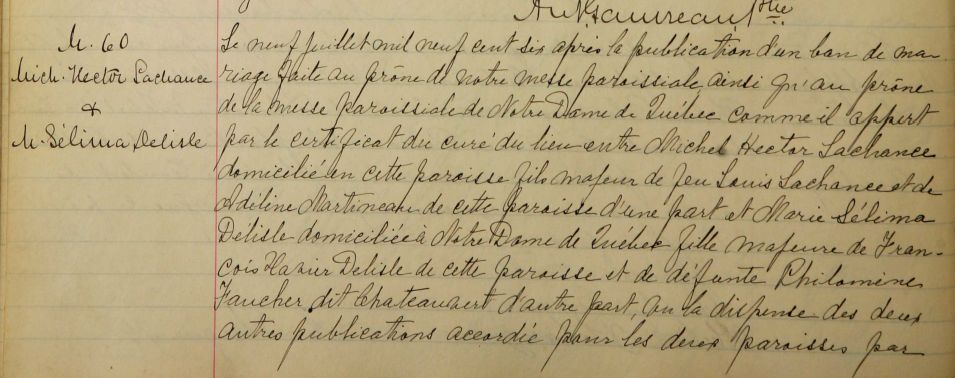 Ptre
M. 60
Mich. Hector Lachance
&
M. Sélima Delisle
Le neuf juillet mil neuf cent six après la publication d'un ban de ma-
riage faite au prône de notre messe paroissiale, ainsi qu'au prône
de la messe paroissiale de Notre Dame de Québec comme il appert
par le certificat du curé du lieu entre Michel Hector Lachance
domicilié en cette paroisse fils majeur de feu Louis Lachance et de
Adéline Martineau de cette paroisse d'une part et Marie Sélima
Delisle domiciliée à Notre Dame de Québec fille majeure de Fran-
çois Xavier Delisle de cette paroisse et de défunte Philomène
Faucher dit Chateauvert d'autre part, vu la dispense des deux
autres publications accordée pour les deux paroisses par